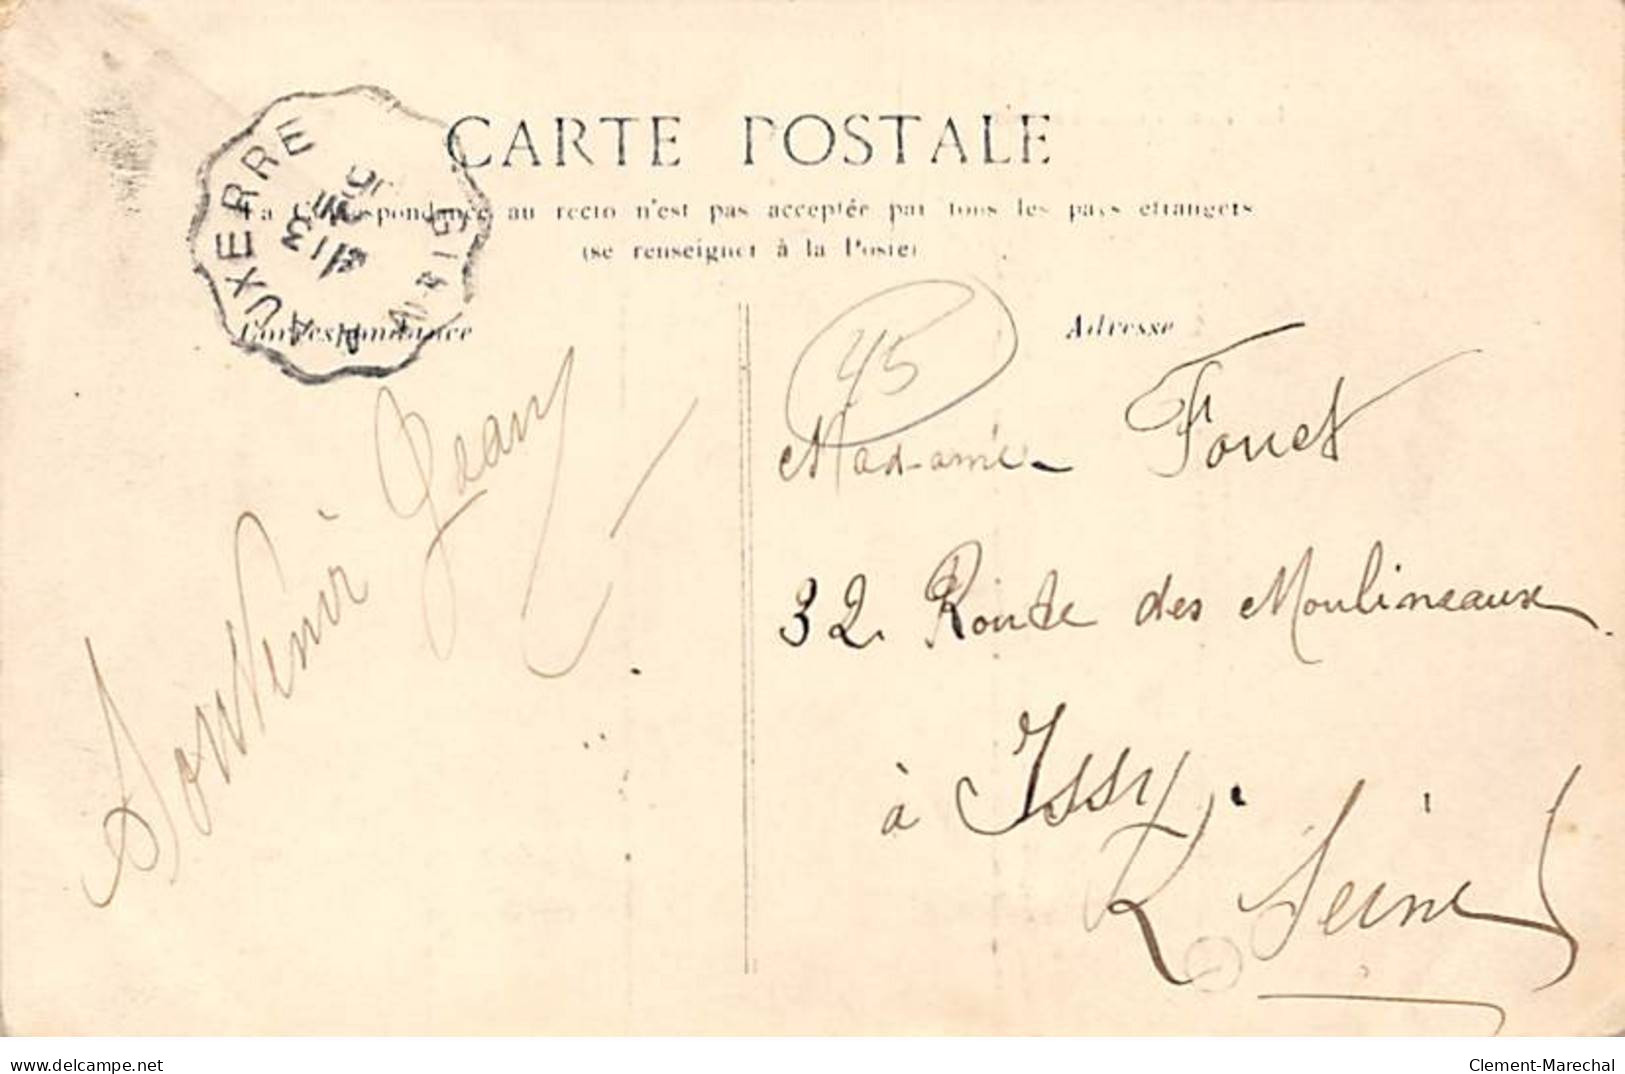 CARTE POSTALE
La Correspondance au recto n'est pas acceptée par tous les pays étrangers
(se renseigner à la Poste)
AUXERRE
Correspondance
Adresse
45
Souvenir Jean
Madame Fouet
32 Route des Moulineaux
à Issy
Seine
delcampe.net
Clement-Marechal